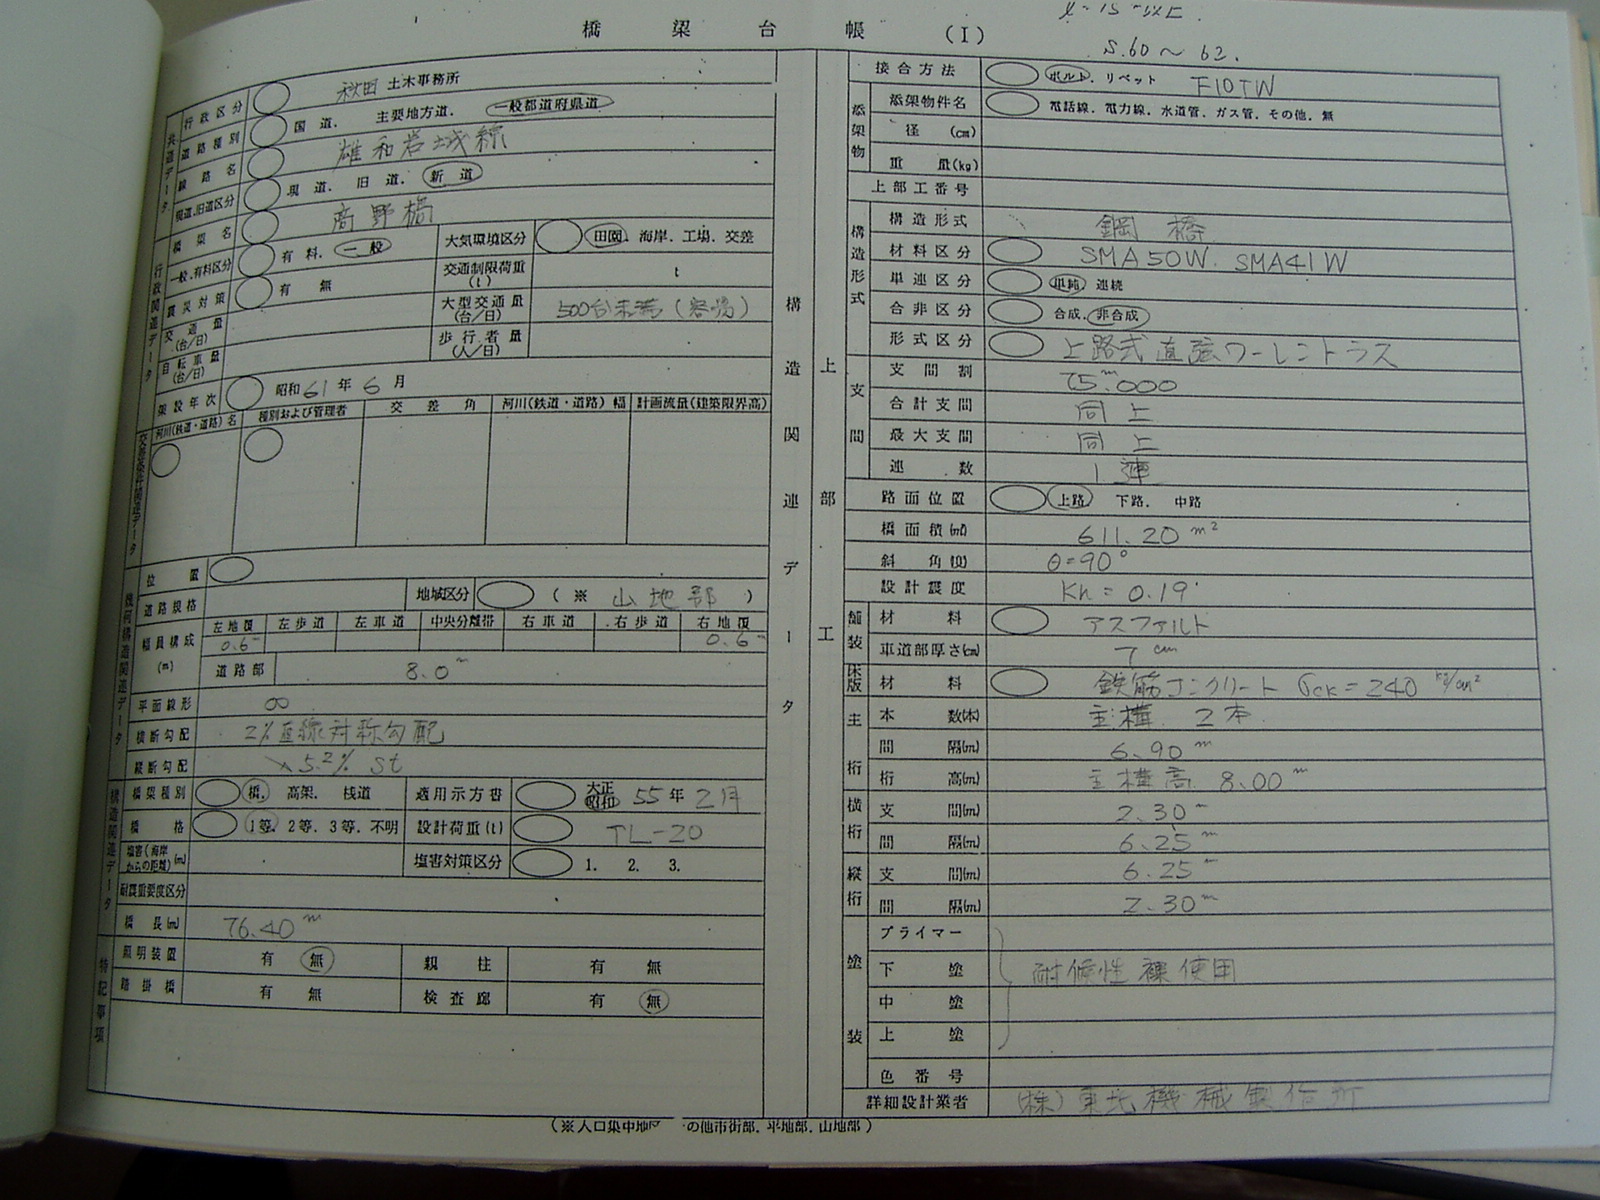 橋梁台帳 (I)
l=15m以上
S.60～62.
共通データ
行政区分 秋田 土木事務所
道路種別 国道. 主要地方道. 一般都道府県道
線路名 雄和岩城線
現道.旧道区分 現道. 旧道. 新道
橋梁名 高野橋
行政関連データ
一般.有料区分 有料. 一般
大気環境区分 田園. 海岸. 工場. 交差
震災対策 有 無
交通制限荷重(t) t
交通量(台/日)
大型交通量(台/日) 500台未満
自転車量(台/日)
歩行者量(人/日)
架設年次 昭和61年6月
河川(鉄道・道路)名 種別および管理者 交差角 河川(鉄道・道路)幅 計画流量(建築限界高)
幾何構造関連データ
位置
道路規格 地域区分 (※ 山地部 )
幅員構成(m) 左地覆 左歩道 左車道 中央分離帯 右車道 右歩道 右地覆
0.6 0.6
道路部 8.0m
平面線形 ∞
横断勾配 2%直線対称勾配
縦断勾配 5.2% st
構造関連データ
橋梁種別 橋. 高架. 桟道
適用示方書 大正 昭和 55年2月
橋格 1等. 2等. 3等. 不明
設計荷重(t) TL-20
塩害(海岸からの距離)(m)
塩害対策区分 1. 2. 3.
耐震重要度区分
橋長(m) 76.40m
特記事項
照明装置 有 無 親柱 有 無
踏掛橋 有 無 検査廊 有 無
構造関連データ
上部工
接合方法 ボルト. リベット F10TW
添架物
添架物件名 電話線. 電力線. 水道管. ガス管. その他. 無
径(cm)
重量(kg)
上部工番号
構造形式
構造形式 鋼橋
材料区分 SMA50W. SMA41W
単連区分 単純 連続
合非区分 合成. 非合成
形式区分 上路式直弦ワーレントラス
支間
支間割 75m.000
合計支間 同上
最大支間 同上
連数 1連
路面位置 上路. 下路. 中路
橋面積(㎡) 611.20 m²
斜角(θ) θ=90°
設計震度 Kh=0.19
舗装
材料 アスファルト
車道部厚さ(cm) 7cm
床版 材料 鉄筋コンクリート σck=240 kg/cm²
主桁
本数(本) 主構 2本
間隔(m) 6.90m
桁高(m) 主構高 8.00m
横桁
支間(m) 2.30m
間隔(m) 6.25m
縦桁
支間(m) 6.25m
間隔(m) 2.30m
塗装
プライマー
下塗 耐候性裸使用
中塗
上塗
色番号
詳細設計業者 (株)東北機械製作所
(※人口集中地 の他市街部. 平地部. 山地部)